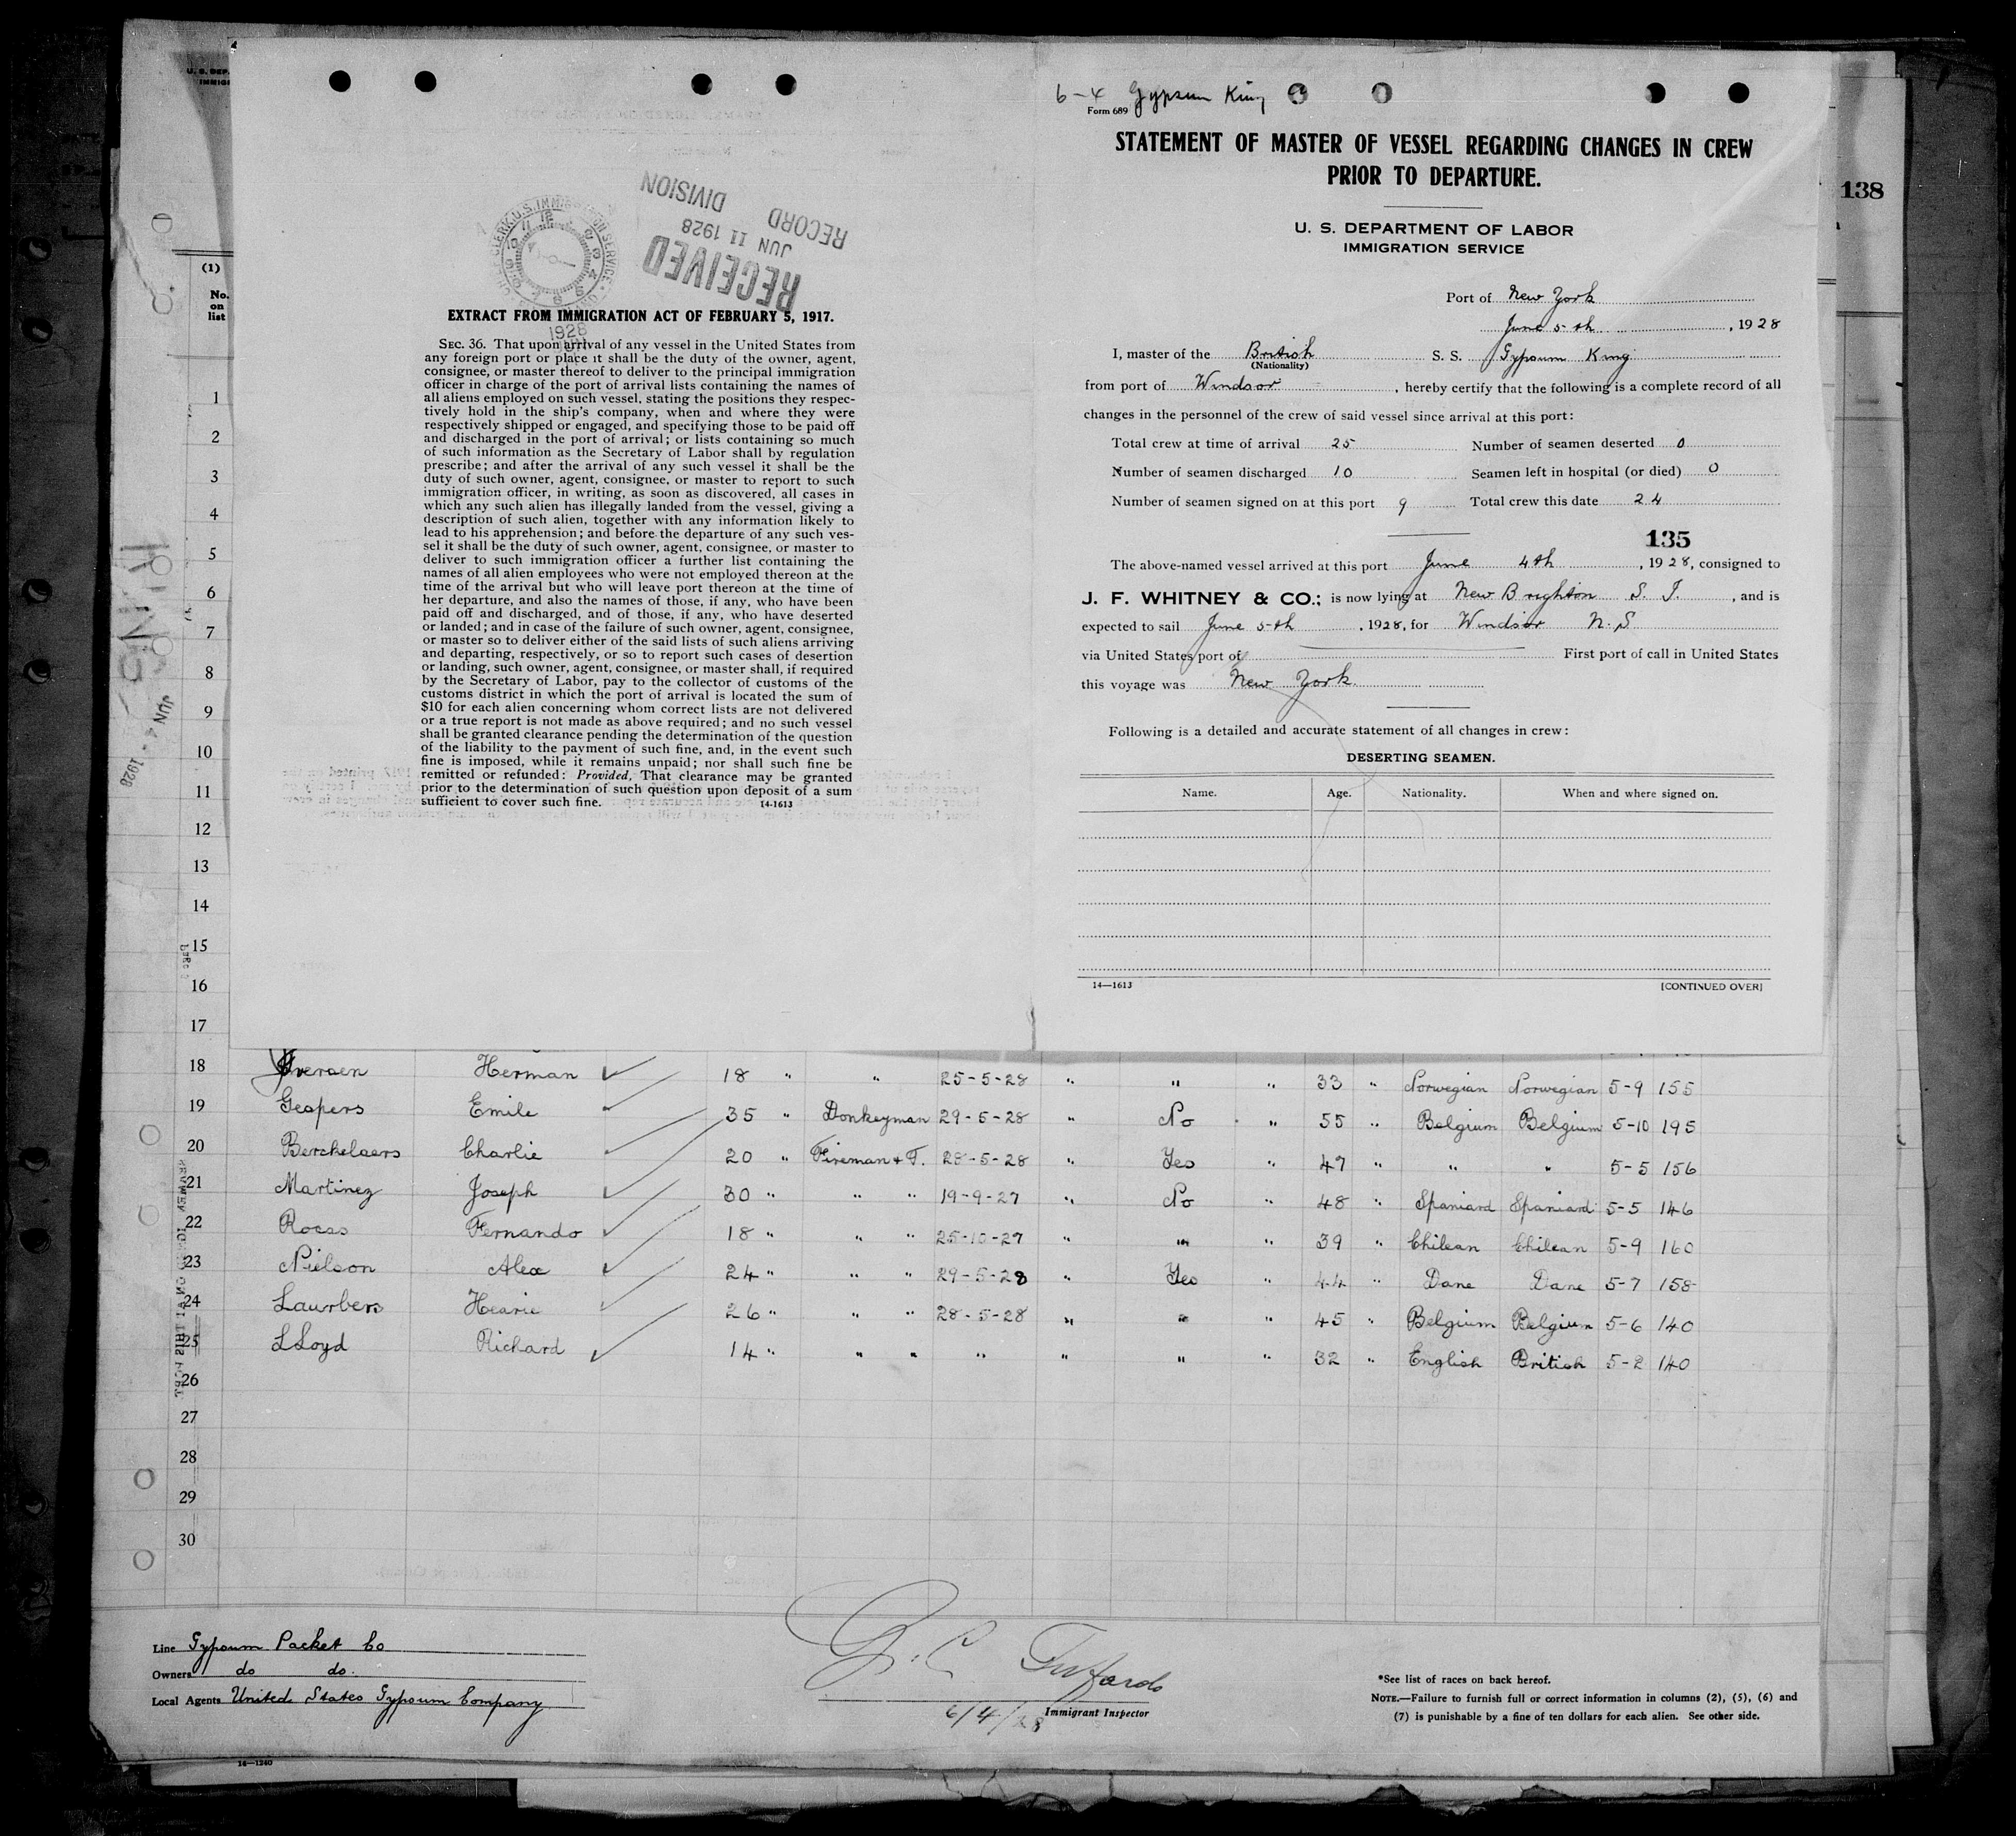 U. S. DEP.
IMMIG
(1)
No.
on
list
RECEIVED
JUN 11 1928
RECORD
DIVISION
1928
EXTRACT FROM IMMIGRATION ACT OF FEBRUARY 5, 1917.
SEC. 36. That upon arrival of any vessel in the United States from
any foreign port or place it shall be the duty of the owner, agent,
consignee, or master thereof to deliver to the principal immigration
officer in charge of the port of arrival lists containing the names of
all aliens employed on such vessel, stating the positions they respec-
tively hold in the ship's company, when and where they were
respectively shipped or engaged, and specifying those to be paid off
and discharged in the port of arrival; or lists containing so much
of such information as the Secretary of Labor shall by regulation
prescribe; and after the arrival of any such vessel it shall be the
duty of such owner, agent, consignee, or master to report to such
immigration officer, in writing, as soon as discovered, all cases in
which any such alien has illegally landed from the vessel, giving a
description of such alien, together with any information likely to
lead to his apprehension; and before the departure of any such ves-
sel it shall be the duty of such owner, agent, consignee, or master to
deliver to such immigration officer a further list containing the
names of all alien employees who were not employed thereon at the
time of the arrival but who will leave port thereon at the time of
her departure, and also the names of those, if any, who have been
paid off and discharged, and of those, if any, who have deserted
or landed; and in case of the failure of such owner, agent, consignee,
or master so to deliver either of the said lists of such aliens arriving
and departing, respectively, or so to report such cases of desertion
or landing, such owner, agent, consignee, or master shall, if required
by the Secretary of Labor, pay to the collector of customs of the
customs district in which the port of arrival is located the sum of
$10 for each alien concerning whom correct lists are not delivered
or a true report is not made as above required; and no such vessel
shall be granted clearance pending the determination of the question
of the liability to the payment of such fine, and, in the event such
fine is imposed, while it remains unpaid; nor shall such fine be
remitted or refunded: Provided, That clearance may be granted
prior to the determination of such question upon deposit of a sum
sufficient to cover such fine. 14-1613
6-4 Gypsum King
Form 689
STATEMENT OF MASTER OF VESSEL REGARDING CHANGES IN CREW
PRIOR TO DEPARTURE.
U. S. DEPARTMENT OF LABOR
IMMIGRATION SERVICE
138
Port of New York
June 5th, 1928
I, master of the British S. S. Gypsum King
(Nationality)
from port of Windsor, hereby certify that the following is a complete record of all
changes in the personnel of the crew of said vessel since arrival at this port:
Total crew at time of arrival 25 Number of seamen deserted 0
Number of seamen discharged 10 Seamen left in hospital (or died) 0
Number of seamen signed on at this port 9 Total crew this date 24
135
The above-named vessel arrived at this port June 4th, 1928, consigned to
J. F. WHITNEY & CO.; is now lying at New Brighton S. I., and is
expected to sail June 5th, 1928, for Windsor N. S
via United States port of First port of call in United States
this voyage was New York.
Following is a detailed and accurate statement of all changes in crew:
DESERTING SEAMEN.
Name. Age. Nationality. When and where signed on.
14—1613 [CONTINUED OVER]
JUN 4 - 1928
1
2
3
4
5
6
7
8
9
10
11
12
13
14
15
16
17
18 Iversen Herman 18 " " 25-5-28 " " " 33 " Norwegian Norwegian 5-9 155
19 Gespers Emile 35 " Donkeyman 29-5-28 " No " 55 " Belgium Belgium 5-10 195
20 Berckelaers Charlie 20 " Fireman & T. 28-5-28 " Yes " 47 " " " 5-5 156
21 Martinez Joseph 30 " " " 19-9-27 " No " 48 " Spaniard Spaniard 5-5 146
22 Rocas Fernando 18 " " " 25-10-27 " " " 39 " Chilean Chilean 5-9 160
23 Nielson Alex 24 " " " 29-5-28 " Yes " 44 " Dane Dane 5-7 158
24 Laurbers Hearie 26 " " " 28-5-28 " " " 45 " Belgium Belgium 5-6 140
25 LLoyd Richard 14 " " " " " " " 32 " English British 5-2 140
26
27
28
29
30
Line Gypsum Packet Co
Owners do do.
Local Agents United States Gypsum Company
6/4/28 Immigrant Inspector
*See list of races on back hereof.
NOTE.—Failure to furnish full or correct information in columns (2), (5), (6) and
(7) is punishable by a fine of ten dollars for each alien. See other side.
14—1240